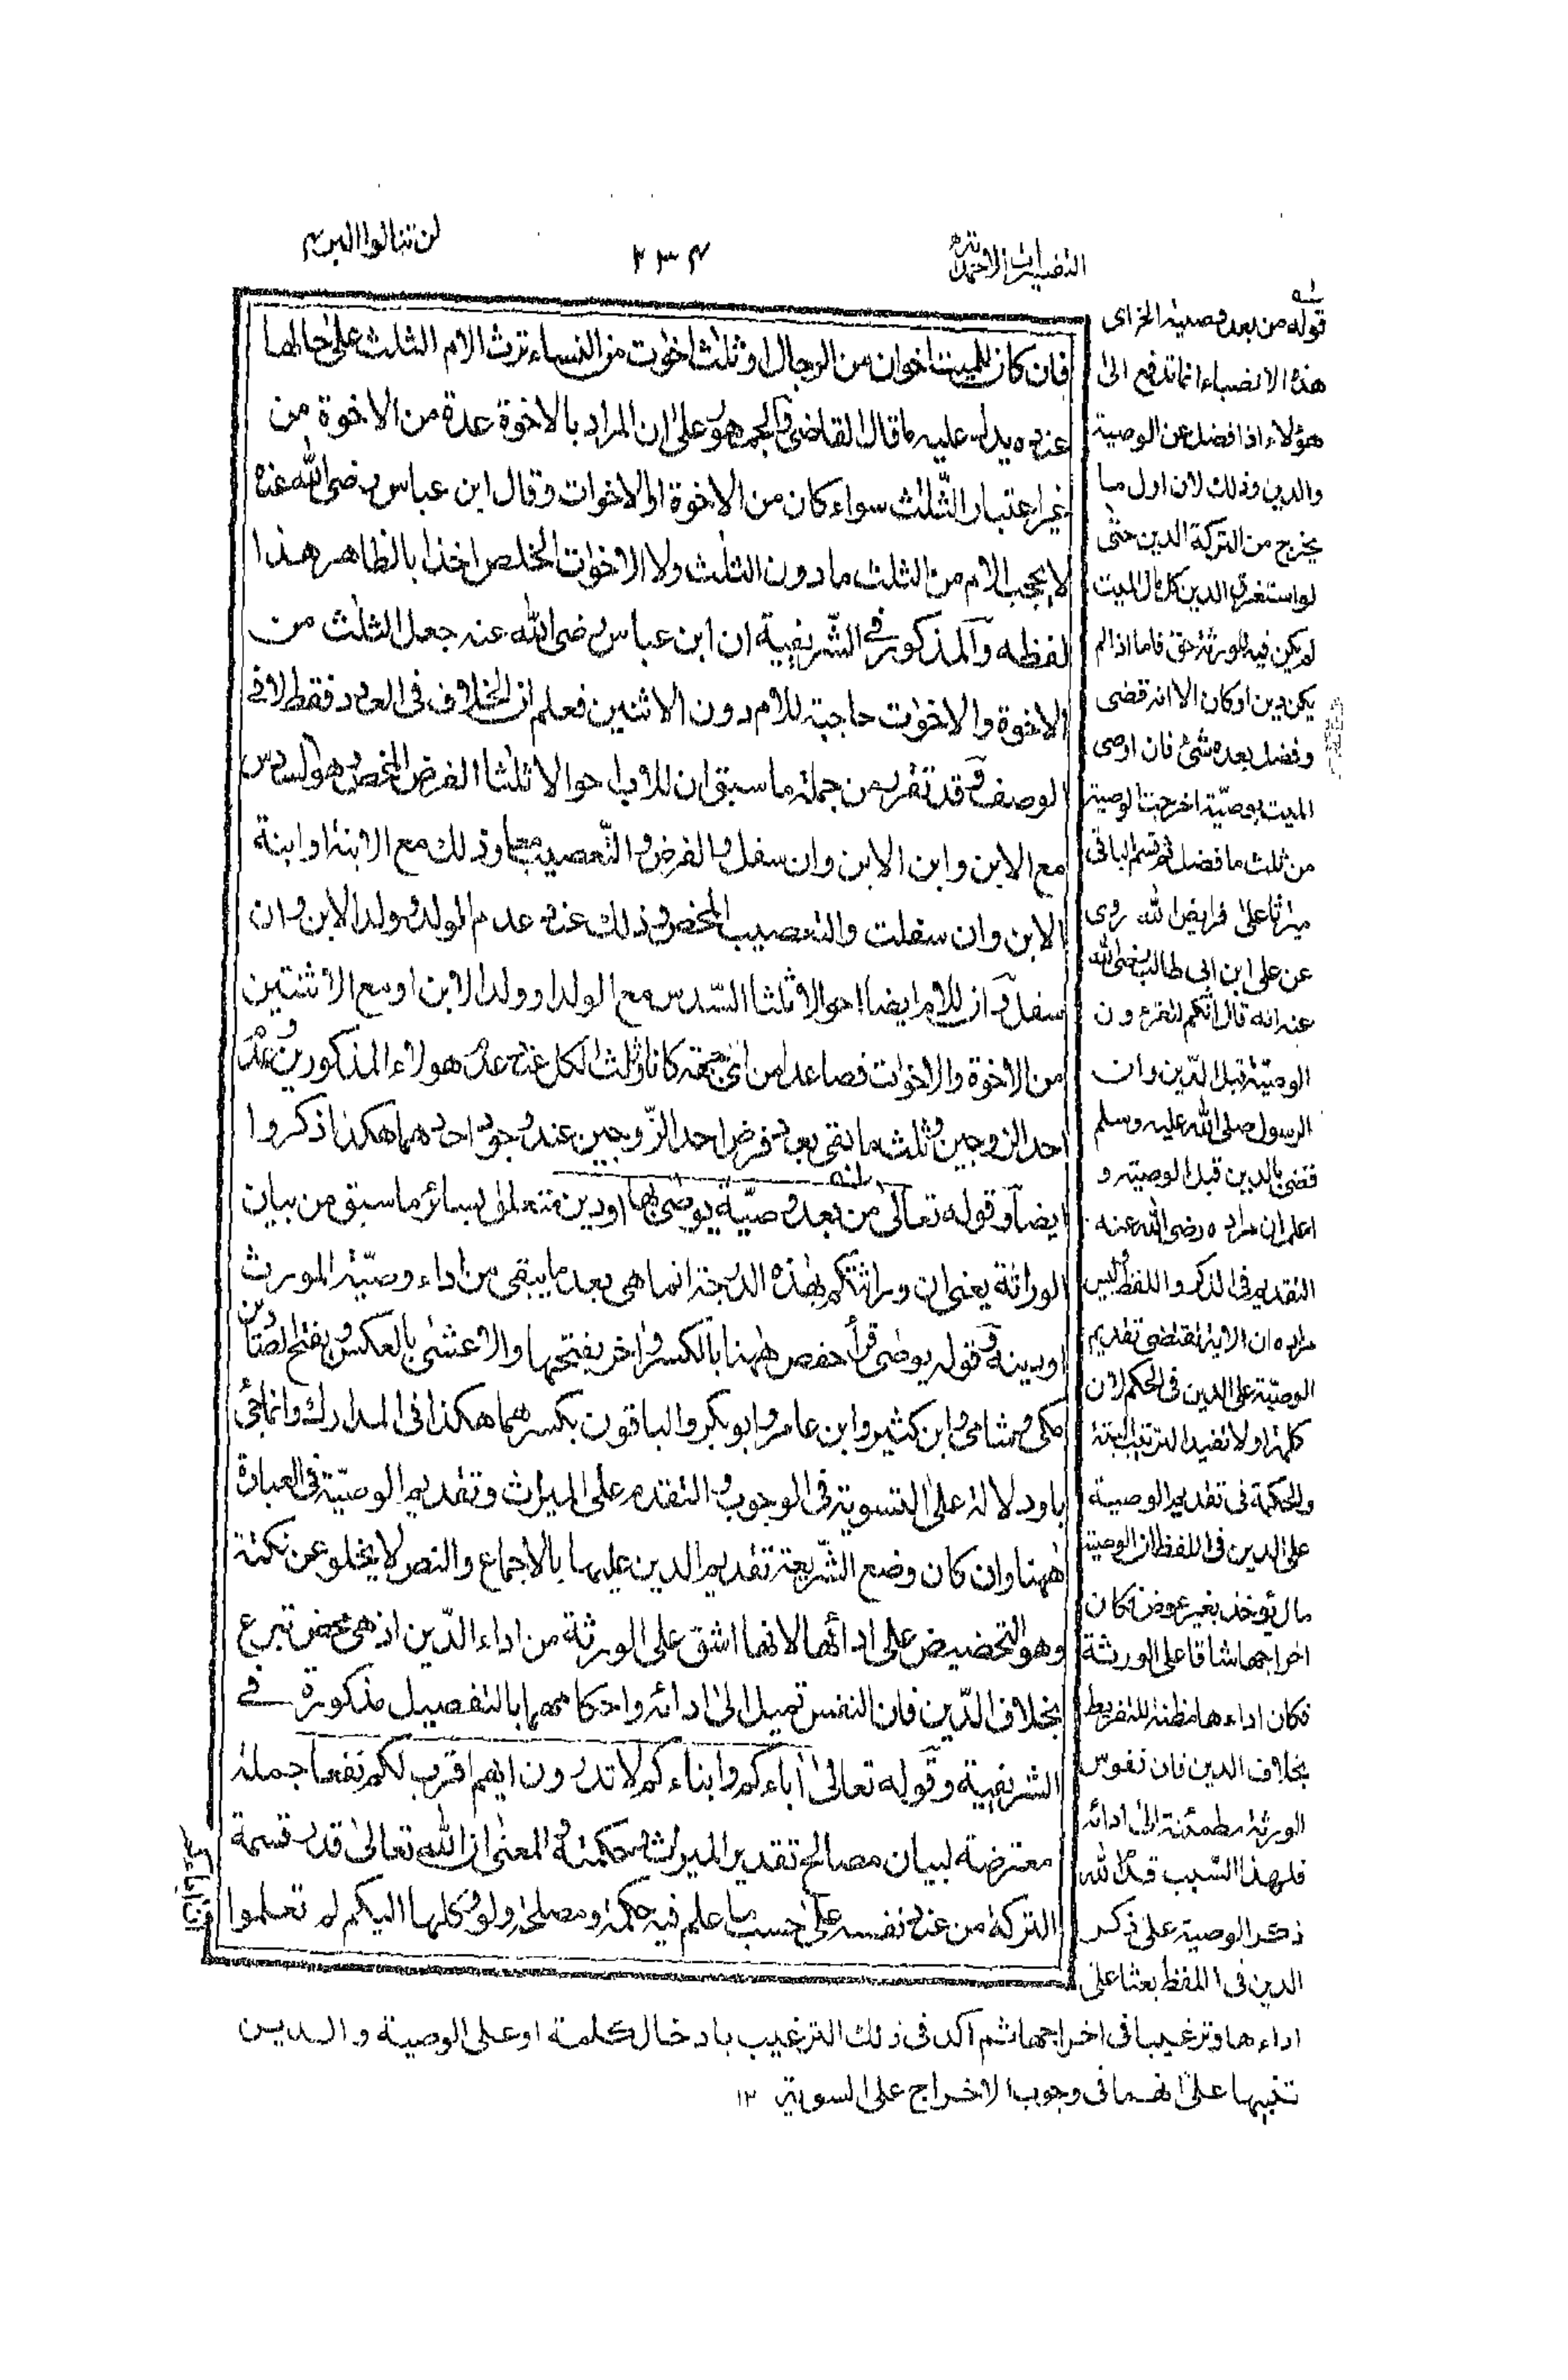 التفسيرات الاحمدية
٢٣٤
لن تنالوا البر ٤
فان كان للميت اخوان من الرجال او ثلث اخوات من النساء ترث الام الثلث على حالها
عنده يدل عليه ما قال القاضى والجمهور على ان المراد بالاخوة عدة من الاخوة من
غير اعتبار الثلث سواء كان من الاخوة او الاخوات وقال ابن عباس رضى الله عنه
لا يحجب الام من الثلث ما دون الثلث ولا الاخوات الخلص اخذا بالظاهر هذا
لفظه والمذكور فى الشريفية ان ابن عباس رضى الله عنه جعل الثلث من
الاخوة والاخوات حاجبة للام دون الاثنين فعلم ان الخلاف فى العدد فقط لا فى
الوصف وقد تقرر من جملة ما سبق ان للاب احوالا ثلثا الفرض المحض وهو السدس
مع الابن وابن الابن وان سفل والفرض والتعصيب معا وذلك مع الابنة او ابنة
الابن وان سفلت والتعصيب المحض وذلك عند عدم الولد وولد الابن وان
سفل وان للام ايضا احوالا ثلثا السدس مع الولد او ولد الابن او مع الاثنتين
من الاخوة والاخوات فصاعدا من اى جهة كانا وثلث الكل عند عدم هولاء المذكورين وعدم
احد الزوجين وثلث ما بقى بعد فرض احد الزوجين عند وجود احدهما هكذا ذكروا
ايضا وقوله تعالى من بعد وصية يوصى بها او دين متعلق بسائر ما سبق من بيان
الوراثة يعنى ان وراثتكم بهذه الدرجة انما هى بعد ما يبقى من اداء وصية المورث
او دينه وقوله يوصى قرأ حفص ههنا بالكسر واخر بفتحها والاعشى بالعكس وبفتح الصاد
مكى وشامى وابن كثير وابن عامر وابو بكر والباقون بكسرهما هكذا فى المدارك وانما جئ
باو دلالة على التسوية فى الوجوب والتقدم على الميراث وتقديم الوصية فى العبارة
ههنا وان كان وضع الشريعة تقديم الدين عليها بالاجماع والنص لا يخلو عن نكتة
وهو التحضيض على ادائها لانها اشق على الورثة من اداء الدين اذ هى محض تبرع
بخلاف الدين فان النفس تميل الى ادائه واحكامهما بالتفصيل مذكورة فى
الشريفية وقوله تعالى اباءكم وابناءكم لا تدرون ايهم اقرب لكم نفعا جملة
معترضة لبيان مصالح تقدير الميراث وحكمته والمعنى ان الله تعالى قدر قسمة
التركة من عند نفسه على حسب ما علم فيه حكمة ومصلحة ولو وكلها اليكم لم تعلموا
قوله من بعد وصية الخ اى
هذه الانصباء انما تدفع الى
هؤلاء اذا فضل عن الوصية
والدين وذلك لان اول ما
يخرج من التركة الدين حتى
لو استغرق الدين كل مال الميت
لم يكن فيه للورثة حق فاما اذا لم
يكن دين او كان الا انه قضى
وفضل بعده شئ فان اوصى
الميت بوصية اخرجت الوصية
من ثلث ما فضل ثم قسم الباقى
ميراثا على فرايض الله روى
عن على ابن ابى طالب رضى الله
عنه انه قال انكم لتقرءون
الوصية قبل الدين وان
الرسول صلى الله عليه وسلم
قضى بالدين قبل الوصية و
اعلم ان مراده رضى الله عنه
التقديم فى الذكر واللفظ وليس
مراده ان الاية تقتضى تقديم
الوصية على الدين فى الحكم لان
كلمة او لا تفيد الترتيب البتة
والحكمة فى تقديم الوصية
على الدين فى اللفظ ان الوصية
مال يؤخذ بغير عوض فكان
اخراجها شاقا على الورثة
فكان اداءها مظنة للتفريط
بخلاف الدين فان نفوس
الورثة مطمئنة الى ادائه
فلهذا السبب قدم الله
ذكر الوصية على ذكر
الدين فى اللفظ بعثا على
اداءها وترغيبا فى اخراجها ثم اكد فى ذلك الترغيب بادخال كلمة او على الوصية والدين
تنبيها على انهما فى وجوب الاخراج على السوية ١٢